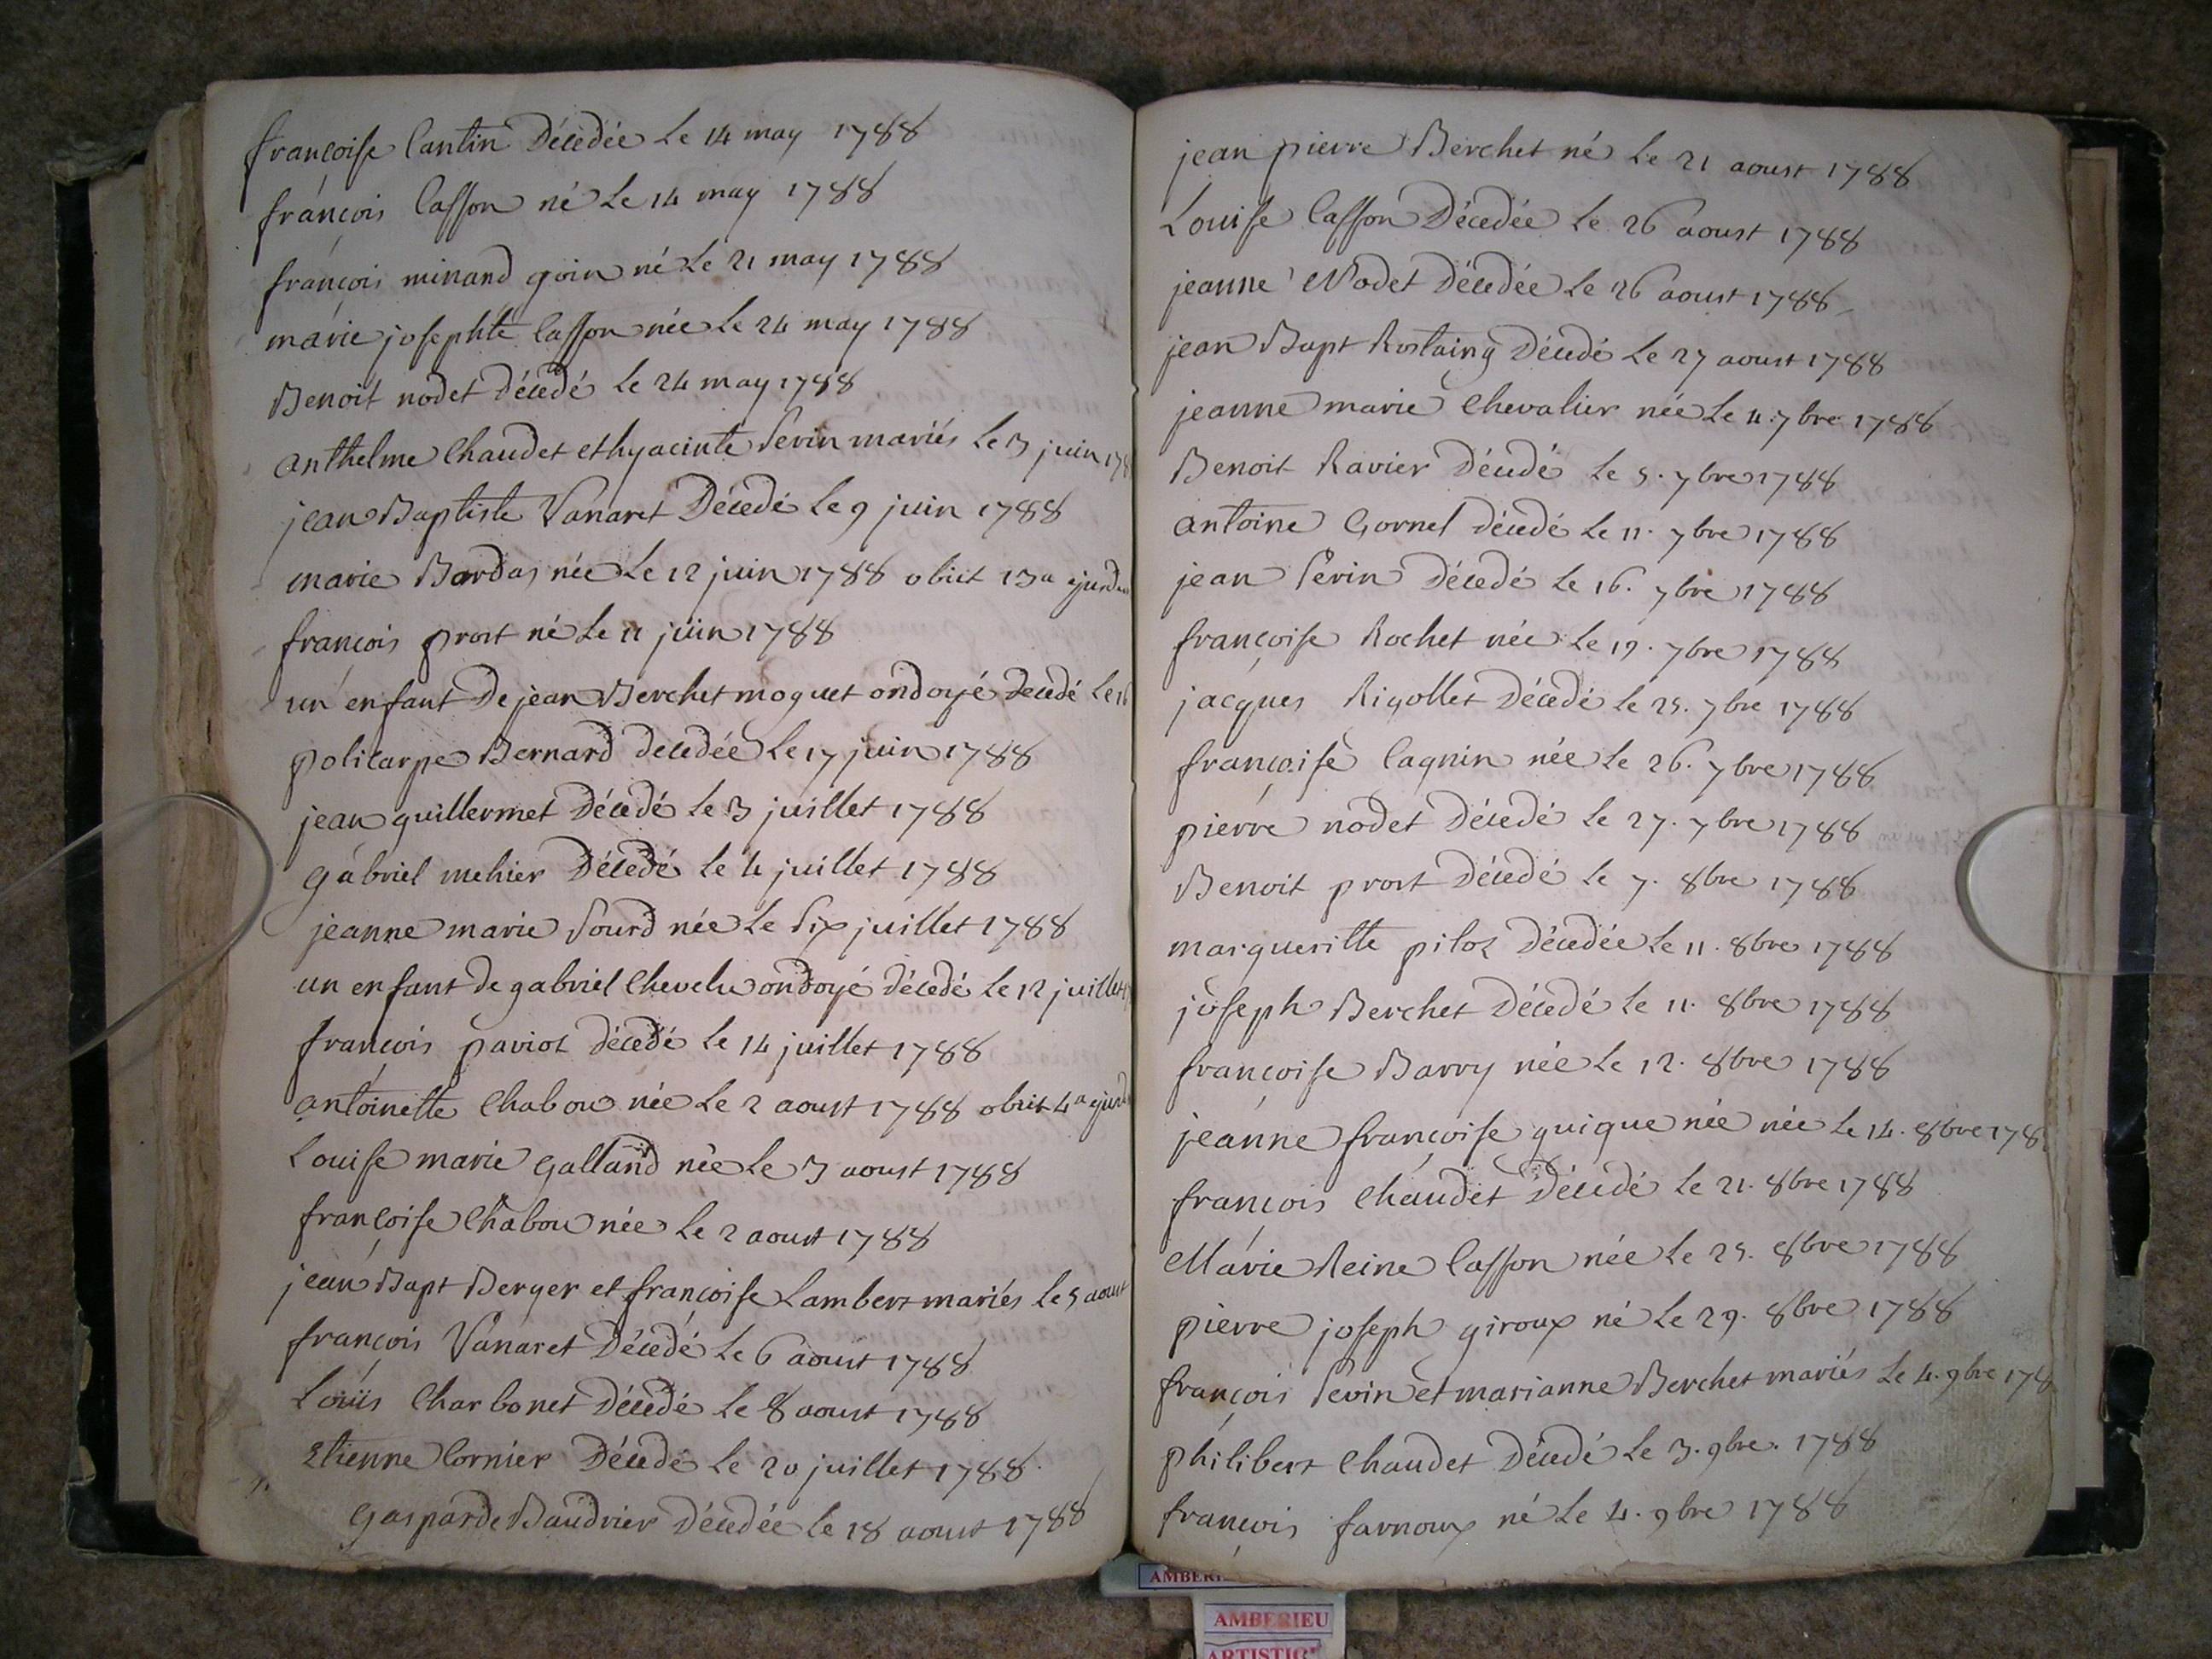 françoise Cantin Décédée Le 14 may 1788
françois Casson né Le 14 may 1788
françois minand goin né Le 21 may 1788
marie josephte Casson née Le 24 may 1788
Benoit nodet Décédé Le 24 may 1788
anthelme Chaudet et hyacinte Sevin mariés Le 3 juin 178
jean Baptiste Vanaret Décedé Le 9 juin 1788
marie Bardas née Le 12 juin 1788 obiit 13a ejusd
françois prost né Le 11 juin 1788
un enfant De jean Berchet moguet ondoyé Decedé Le 16
policarpe Bernard decedée Le 17 juin 1788
jean guillermet Décedé Le 3 juillet 1788
gabriel mehier Décedé Le 4 juillet 1788
jeanne marie Sourd née Le Six juillet 1788
un enfant De gabriel Chevelu ondoyé décedé Le 12 juillet
françois paviot décedé Le 14 juillet 1788
antoinette Chabou née Le 2 aoust 1788 obiit 4a ejusd
Louise marie Galland née Le 3 aoust 1788
françoise Chabou née Le 2 aoust 1788
jean Bapt Berger et françoise Lambert mariés Le 5 aoust
françois Vanaret Décedé Le 6 aoust 1788
Louis Charbonet Décedé Le 8 aoust 1788
Etienne Cornier Décedé Le 20 juillet 1788
Gasparde Baudrier Décedée Le 18 aoust 1788
jean pierre Berchet né Le 21 aoust 1788
Louise Casson Décedée Le 26 aoust 1788
jeanne Nodet Décedée Le 26 aoust 1788
jean Bapt Rostaing Décedé Le 27 aoust 1788
jeanne marie Chevalier née Le 4. 7bre 1788
Benoit Ravier Décedé Le 5. 7bre 1788
antoine Gornel décedé Le 11. 7bre 1788
jean Sevin Décedé Le 16. 7bre 1788
françoise Rochet née Le 19. 7bre 1788
jacques Rigollet Décedé Le 25. 7bre 1788
françoise Cagnin née Le 26. 7bre 1788
pierre nodet Décedé Le 27. 7bre 1788
Benoit prost Décedé Le 7. 8bre 1788
margueritte pilot Décedée Le 11. 8bre 1788
joseph Berchet Décedé Le 11. 8bre 1788
françoise Barry née Le 12. 8bre 1788
jeanne françoise guigue née née Le 14. 8bre 178
françois Chaudet Décedé Le 21. 8bre 1788
Marie Reine Casson née Le 25. 8bre 1788
pierre joseph giroux né Le 29. 8bre 1788
françois Sevin et marianne Berchet mariés Le 4. 9bre 178
philibert Chaudet Décedé Le 3. 9bre. 1788
françois farnoux né Le 4. 9bre 1788
AMBERIEU
ARTISTIQ